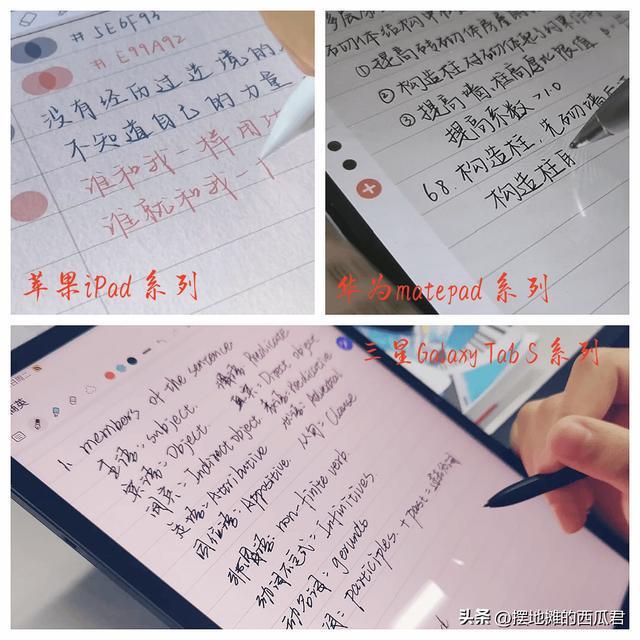 #5E6F93
#E99A92
没有经历过逆境的人
不知道自己的力量
谁和我一样用功
谁就和我一
苹果iPad 系列
①提高砖砌体房屋
②构造柱对砌体起到
③提高墙、柱高厚比限值
提高系数>1.0
68.构造柱,先砌墙后
构造柱
华为matepad 系列
三星Galaxy Tab S 系列
1. members of the sentence
主语: subject. 谓语: Predicate
宾语: Object. 直宾: Direct object
间宾: Indirect object. 表语: Predicative
定语: Attributive 状语: Adverbial
同位语: Appositive. 从句: Clause
非谓语: non-finite verb.
动词不定式: Infinitives.
动名词: gerunds
词: participles. + past:
头条 @摆地摊的西瓜君